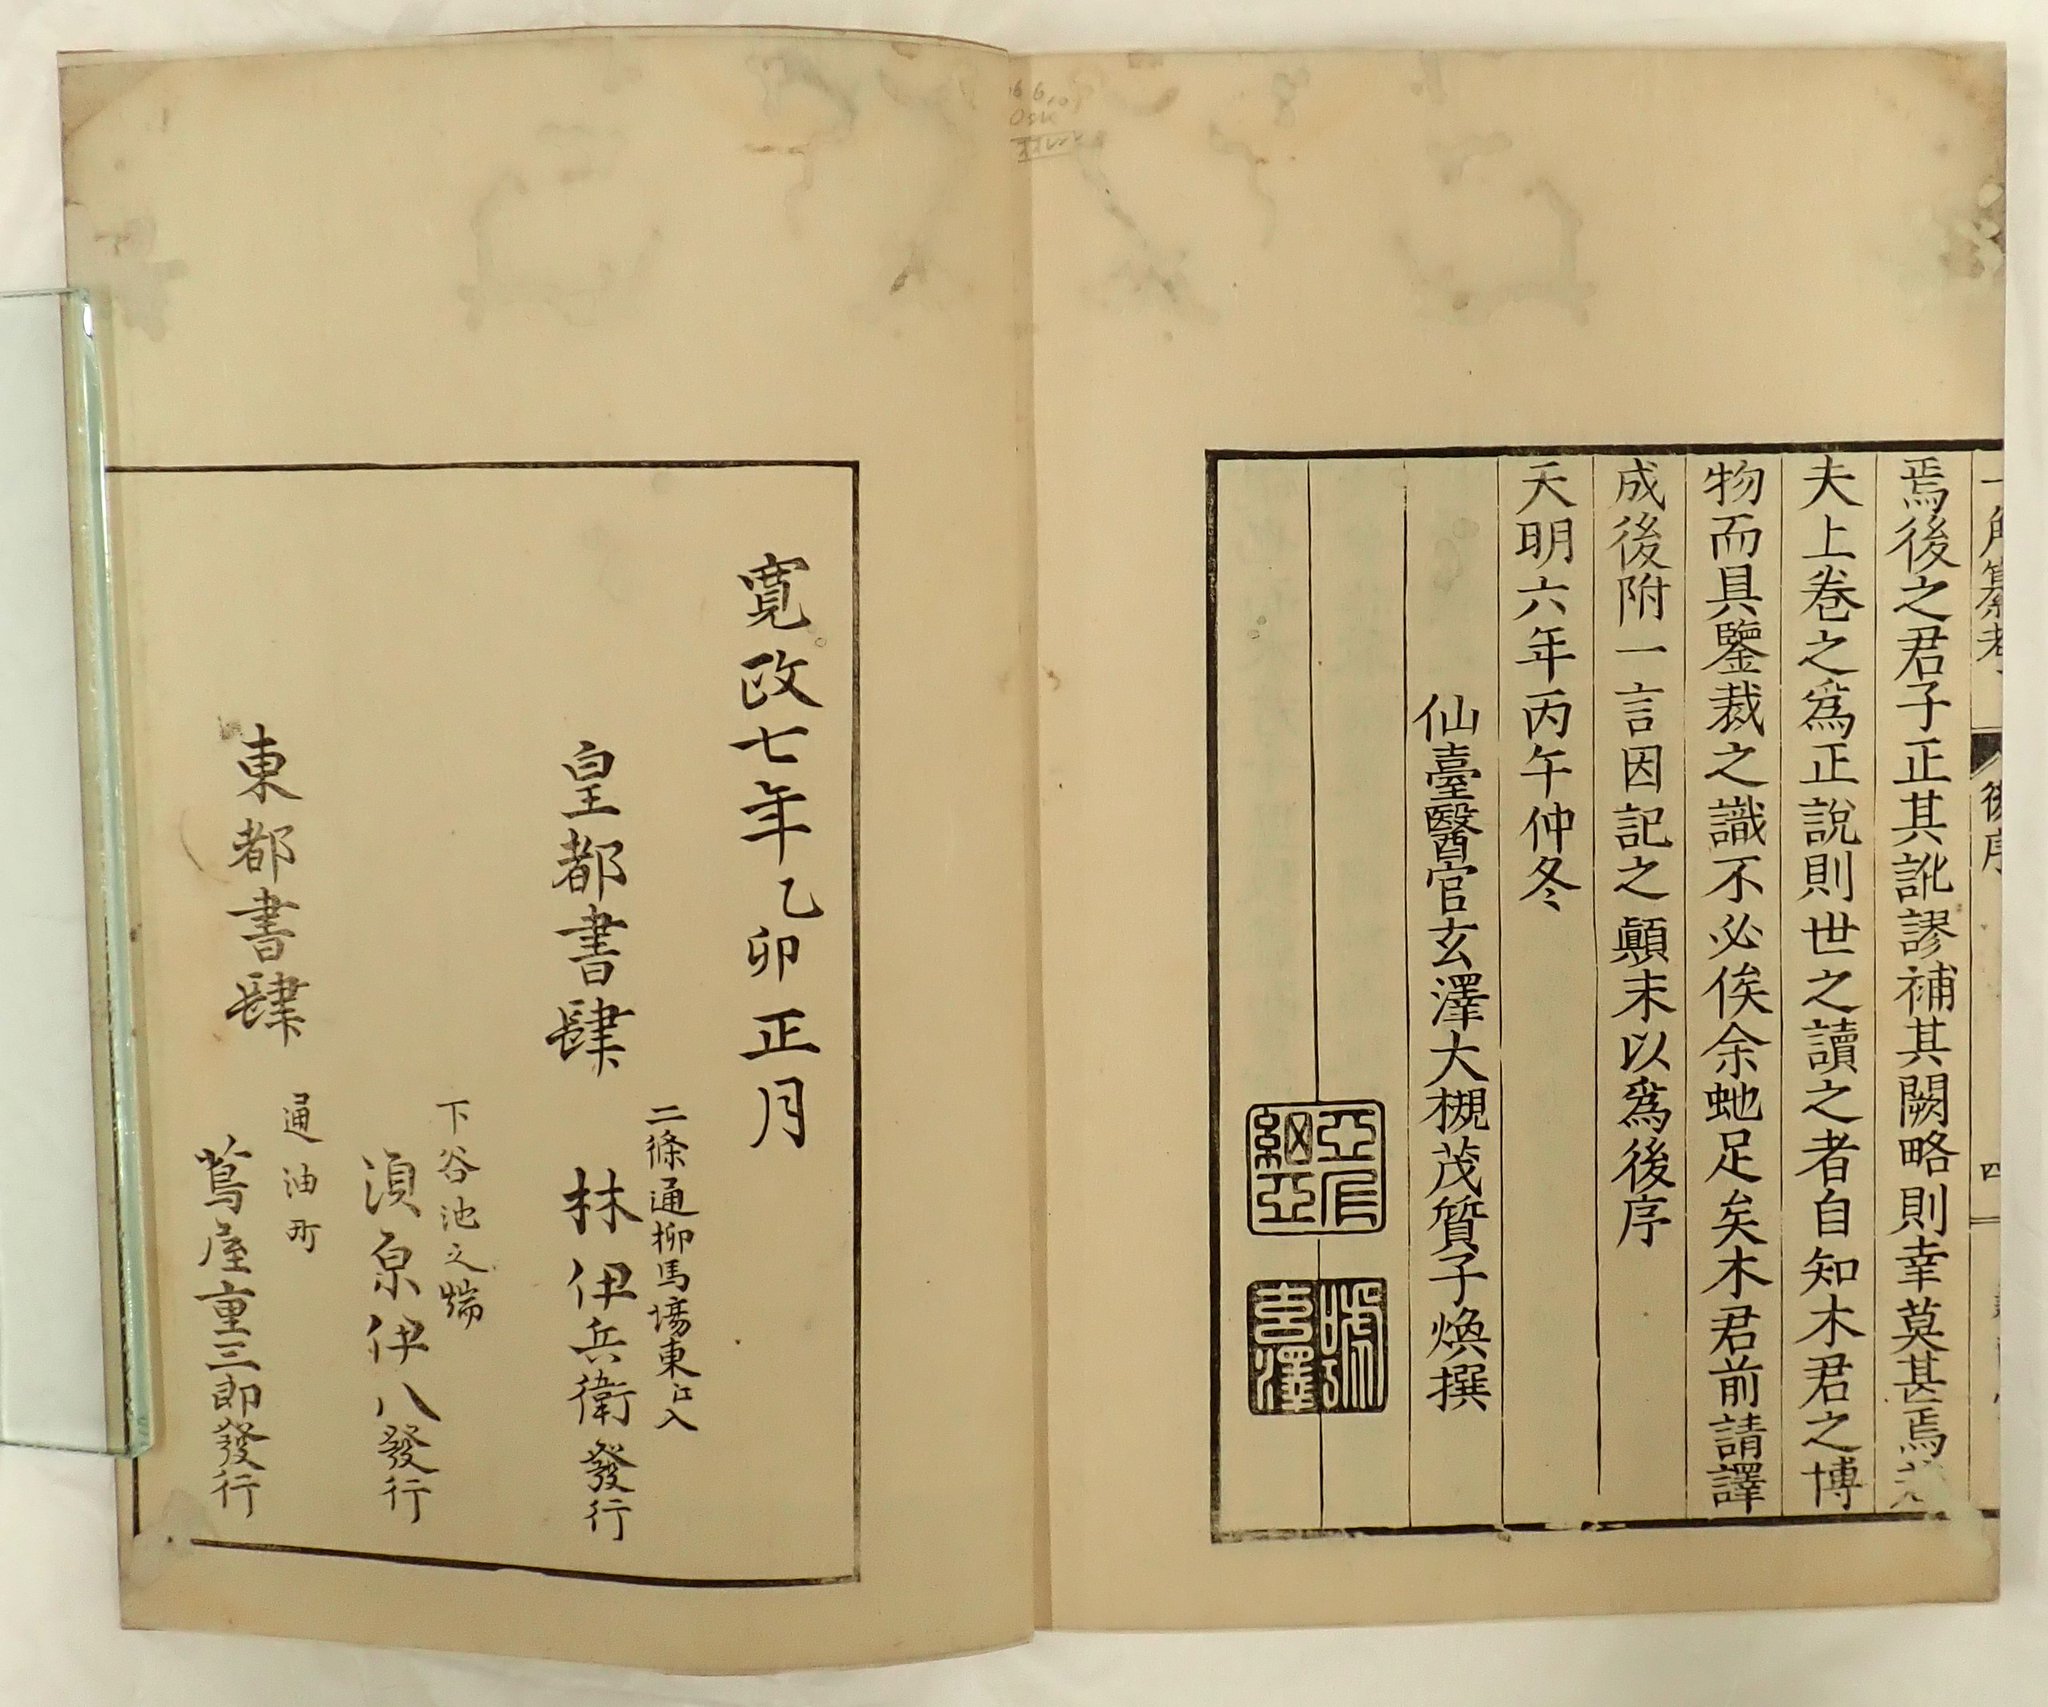 一角纂考
後序
四
焉後之君子正其訛謬補其闕略則幸莫甚焉
夫上卷之爲正說則世之讀之者自知木君之博
物而具鑒裁之識不必俟余虵足矣木君前請譯
成後附一言因記之顚末以爲後序
天明六年丙午仲冬
仙臺醫官玄澤大槻茂質子煥撰
寛政七年乙卯正月
二條通柳馬場東江入
皇都書肆 林伊兵衛發行
下谷池之端
須原伊八發行
通油町
東都書肆 蔦屋重三郎發行